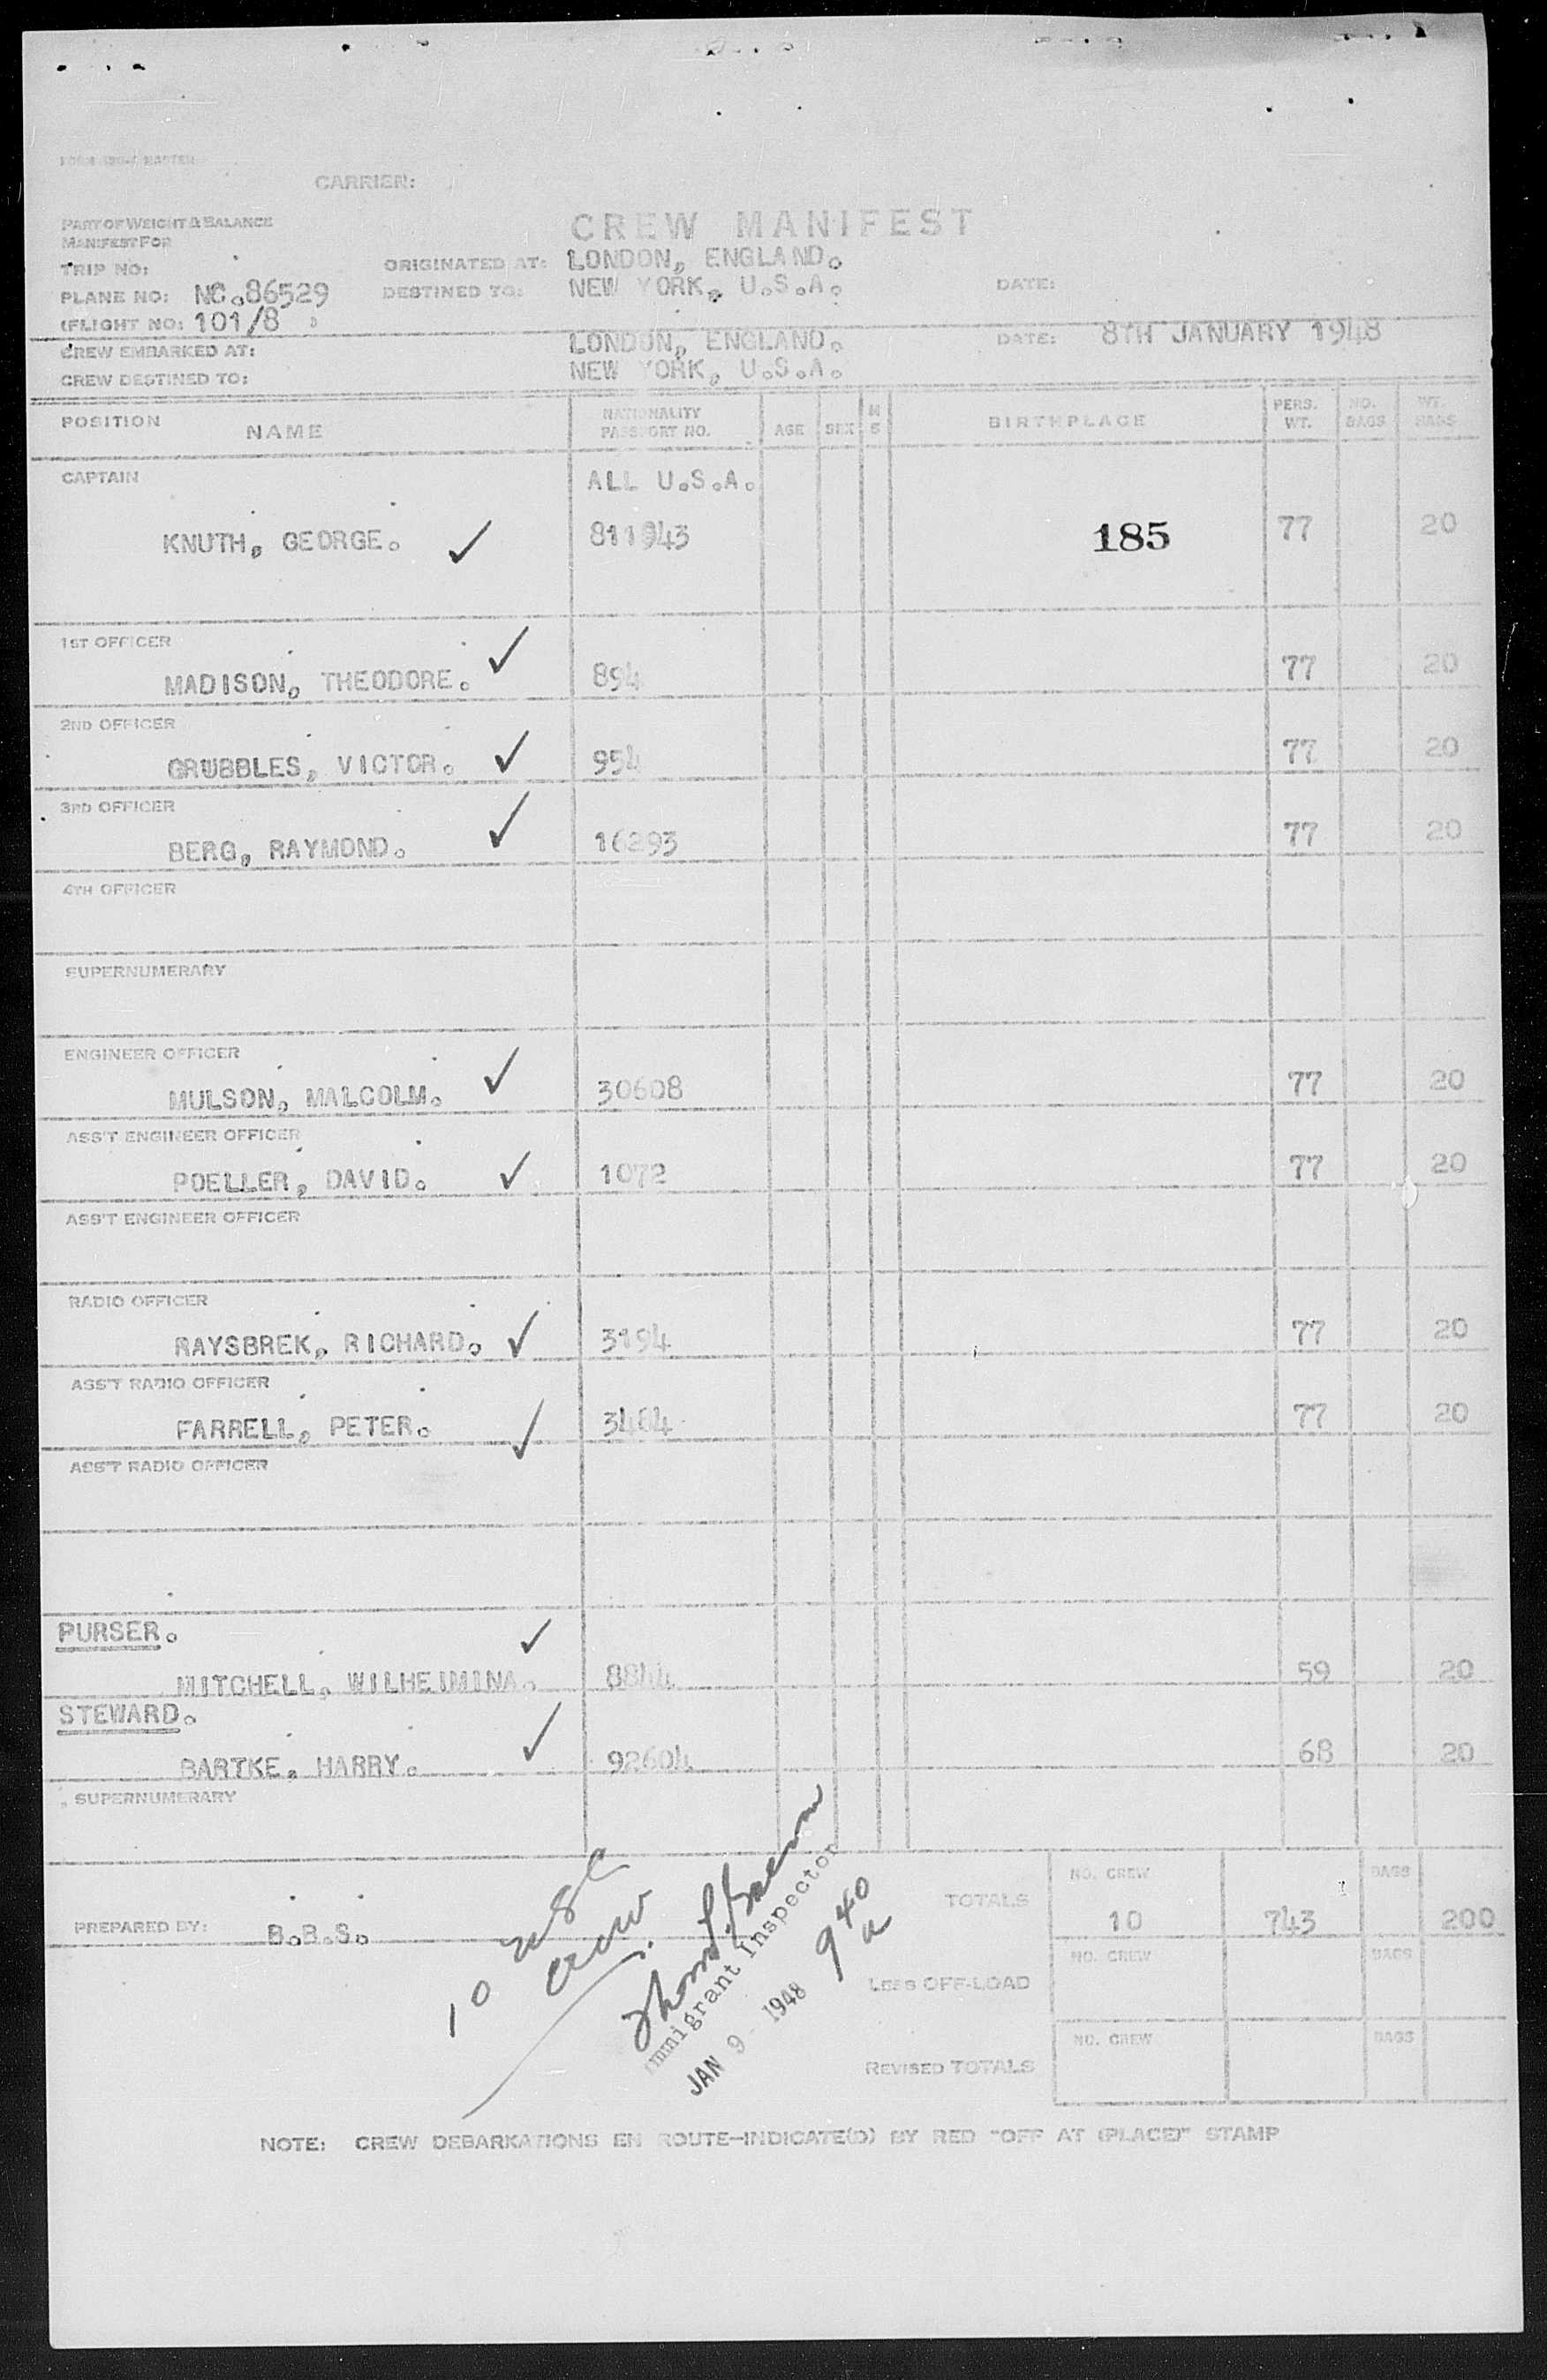 CARRIER:
PART OF WEIGHT & BALANCE
MANIFEST FOR
CREW MANIFEST
TRIP NO: ORIGINATED AT: LONDON, ENGLAND.
PLANE NO: NC.86529 DESTINED TO: NEW YORK, U.S.A. DATE:
(FLIGHT NO: 101/8 )
CREW EMBARKED AT: LONDON, ENGLAND. DATE: 8TH JANUARY 1948
CREW DESTINED TO: NEW YORK, U.S.A.
POSITION NAME NATIONALITY PASSPORT NO. AGE SEX M S BIRTHPLACE PERS. WT. NO. BAGS WT. BAGS
CAPTAIN ALL U.S.A.
KNUTH, GEORGE. ✓ 811943 185 77 20
1ST OFFICER
MADISON, THEODORE. ✓ 894 77 20
2ND OFFICER
GRUBBLES, VICTOR. ✓ 954 77 20
3RD OFFICER
BERG, RAYMOND. ✓ 16293 77 20
4TH OFFICER
SUPERNUMERARY
ENGINEER OFFICER
MULSON, MALCOLM. ✓ 30608 77 20
ASS'T ENGINEER OFFICER
POELLER, DAVID. ✓ 1072 77 20
ASS'T ENGINEER OFFICER
RADIO OFFICER
RAYSBREK, RICHARD. ✓ 3194 77 20
ASS'T RADIO OFFICER
FARRELL, PETER. ✓ 3464 77 20
ASS'T RADIO OFFICER
PURSER. ✓
MITCHELL, WILHEIMINA. 59 20
STEWARD.
BARTKE, HARRY. ✓ 92604 68 20
SUPERNUMERARY
TOTALS NO. CREW BAGS
10 743 200
PREPARED BY: B.B.S.
10 USC
crew
Immigrant Inspector
JAN 9 1948
9 40 a
LESS OFF-LOAD NO. CREW BAGS
REVISED TOTALS NO. CREW BAGS
NOTE: CREW DEBARKATIONS EN ROUTE—INDICATE(D) BY RED "OFF AT (PLACE)" STAMP